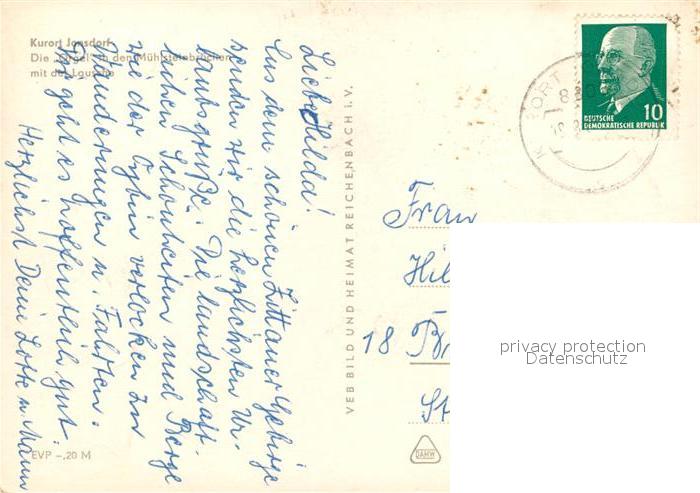 Kurort Jonsdorf
Die „Orgel“ in den Mühlsteinbrüchen
mit der Lausche
Liebe Hilda!
Aus dem schönen Zittauer Gebirge
senden wir die herzlichsten Ur-
laubsgrüße. Die landschaft-
lichen Schönheiten und Berge
wie der Oybin verlocken zu
Wanderungen u. Fahrten.
Dir geht es hoffentlich gut.
Herzlichst Deine Lotte u. Mann
EVP -,20 M
VEB BILD UND HEIMAT REICHENBACH i. V.
DEUTSCHE
DEMOKRATISCHE REPUBLIK
10
Frau
Hil
18
St
privacy protection
Datenschutz
DAHW